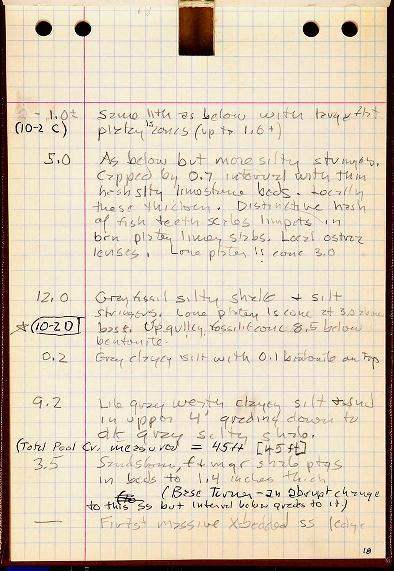 - 1.0± Same lith as below with large flat
(10-2 C) platey ls cones (up to 1.6+)
5.0 As below but more silty stringers.
Capped by 0.7 interval with thin
hash silty limestone beds. Locally
these thicken. Distinctive hash
of fish teeth scales limpets in
brn platey limey slabs. Local ostrea
lenses. Lone platey ls conc 3.0
12.0 Gray fissil silty shale + silt
stringers. Lone platey ls conc at 3.0 above
(10-2D) base. Up gulley fossil conc 8.5 below
bentonite.
0.2 Gray clayey silt with 0.1 bentonite on top
9.2 Lite gray clayey silt
in upper 4' grading down to
dk gray silty shale.
(Total Pool Cr. measured = 45ft [45ft]
3.5 Sandstone, shale ptgs
in beds to 1.4 inches thick
(Base Turner - an abrupt change
to this ss but interval below grades to it)
— First massive X-bedded ss ledge
18